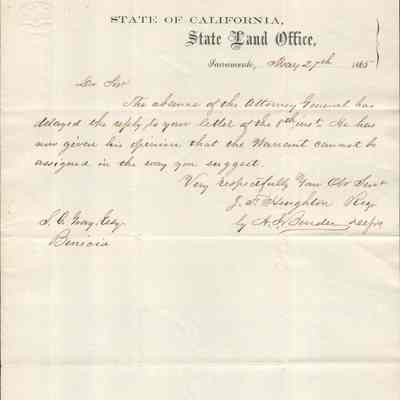 STATE OF CALIFORNIA,
State Land Office,
Sacramento, May 27th 1865
Dr Sir
The absence of the Attorney General has
delayed the reply to your letter of the 8th inst. He has
now given his opinion that the Warrant cannot be
assigned in the way you suggest.
Very respectfully Your Obt Servt
J. F. Houghton Reg
by A. S. Bender
S. C. Gray Esq.
Benicia